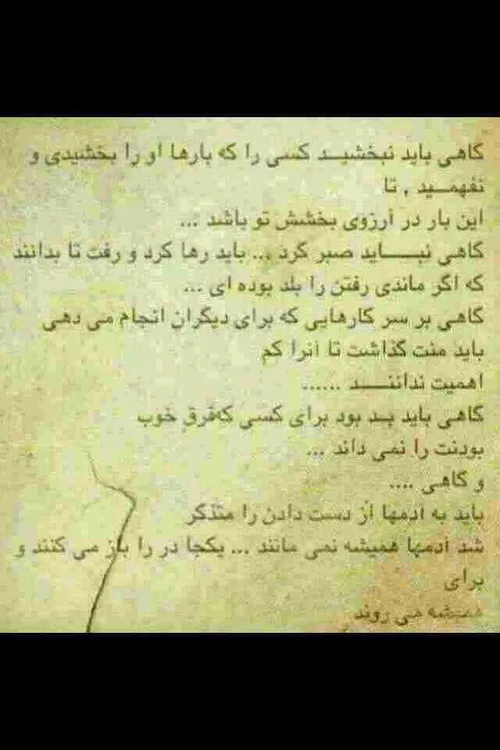 گاهی باید نبخشیـد کسی را که بارها او را بخشیدی و
نفهمـید , تا
این بار در آرزوی بخشش تو باشد ...
گاهی نبـــاید صبر کرد ... باید رها کرد و رفت تا بدانند
که اگر ماندی رفتن را بلد بوده ای ...
گاهی بر سر کارهایی که برای دیگران انجام می دهی
باید منت گذاشت تا آنرا کم
اهمیت نداننــد ......
گاهی باید بـد بود برای کسی که‌فرق خوب
بودنت را نمی داند ...
و گاهی ....
باید به آدمها از دست دادن را متذکر
شد آدمها همیشه نمی مانند ... یکجا در را باز می کنند و
برای
همیشه می روند